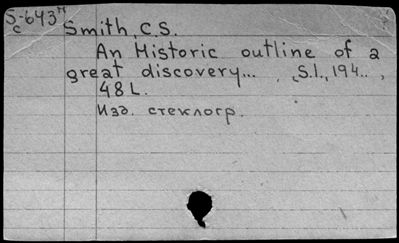 S-643H
c
Smith, C.S.
An Historic outline of a
great discovery... , S.l., 194.. ,
48 L.
Изд. стеклогр.